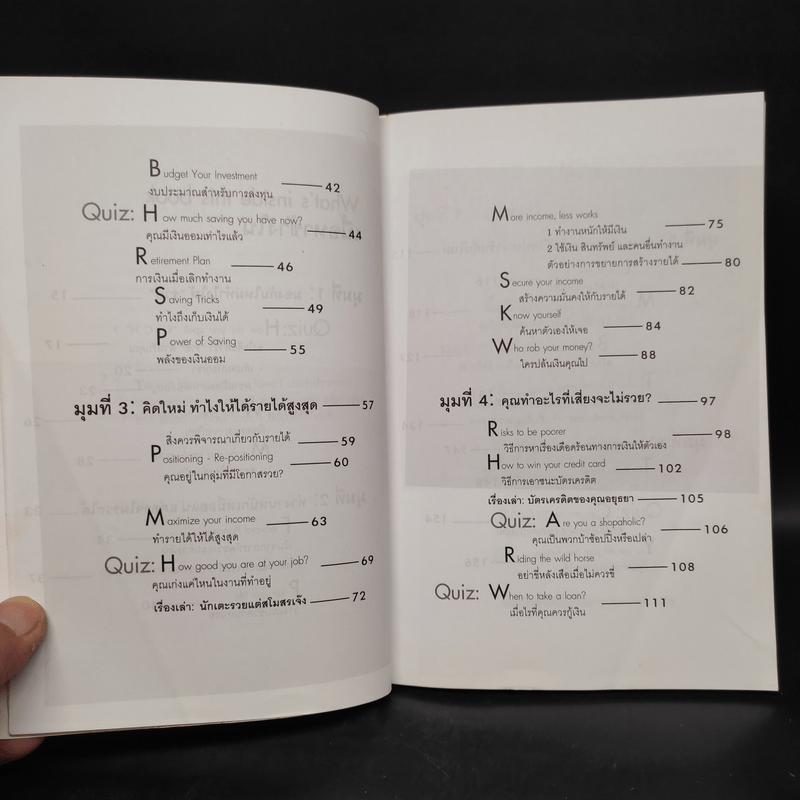 Budget Your Investment 42
งบประมาณสำหรับการลงทุน
Quiz: How much saving you have now?
คุณมีเงินออมเท่าไรแล้ว 44
Retirement Plan 46
การเงินเมื่อเลิกทำงาน
Saving Tricks 49
ทำไงถึงเก็บเงินได้
Power of Saving 55
พลังของเงินออม
มุมที่ 3: คิดใหม่ ทำไงให้ได้รายได้สูงสุด 57
สิ่งควรพิจารณาเกี่ยวกับรายได้ 59
Positioning - Re-positioning 60
คุณอยู่ในกลุ่มที่มีโอกาสรวย?
Maximize your income 63
ทำรายได้ให้ได้สูงสุด
Quiz: How good you are at your job? 69
คุณเก่งแค่ไหนในงานที่ทำอยู่
เรื่องเล่า: นักเตะรวยแต่สโมสรเจ๊ง 72
More income, less works 75
1 ทำงานหนักให้มีเงิน
2 ใช้เงิน สินทรัพย์ และคนอื่นทำงาน
ตัวอย่างการขยายการสร้างรายได้ 80
Secure your income 82
สร้างความมั่นคงให้กับรายได้
Know yourself 84
ค้นหาตัวเองให้เจอ
Who rob your money? 88
ใครปล้นเงินคุณไป
มุมที่ 4: คุณทำอะไรที่เสี่ยงจะไม่รวย? 97
Risks to be poorer 98
วิธีการหาเรื่องเดือดร้อนทางการเงินให้ตัวเอง
How to win your credit card 102
วิธีการเอาชนะบัตรเครดิต
เรื่องเล่า: บัตรเครดิตของคุณอยุธยา 105
Quiz: Are you a shopaholic? 106
คุณเป็นพวกบ้าช้อปปิ้งหรือเปล่า
Riding the wild horse 108
อย่าขี่หลังเสือเมื่อไม่ควรขี่
Quiz: When to take a loan? 111
เมื่อไรที่คุณควรกู้เงิน